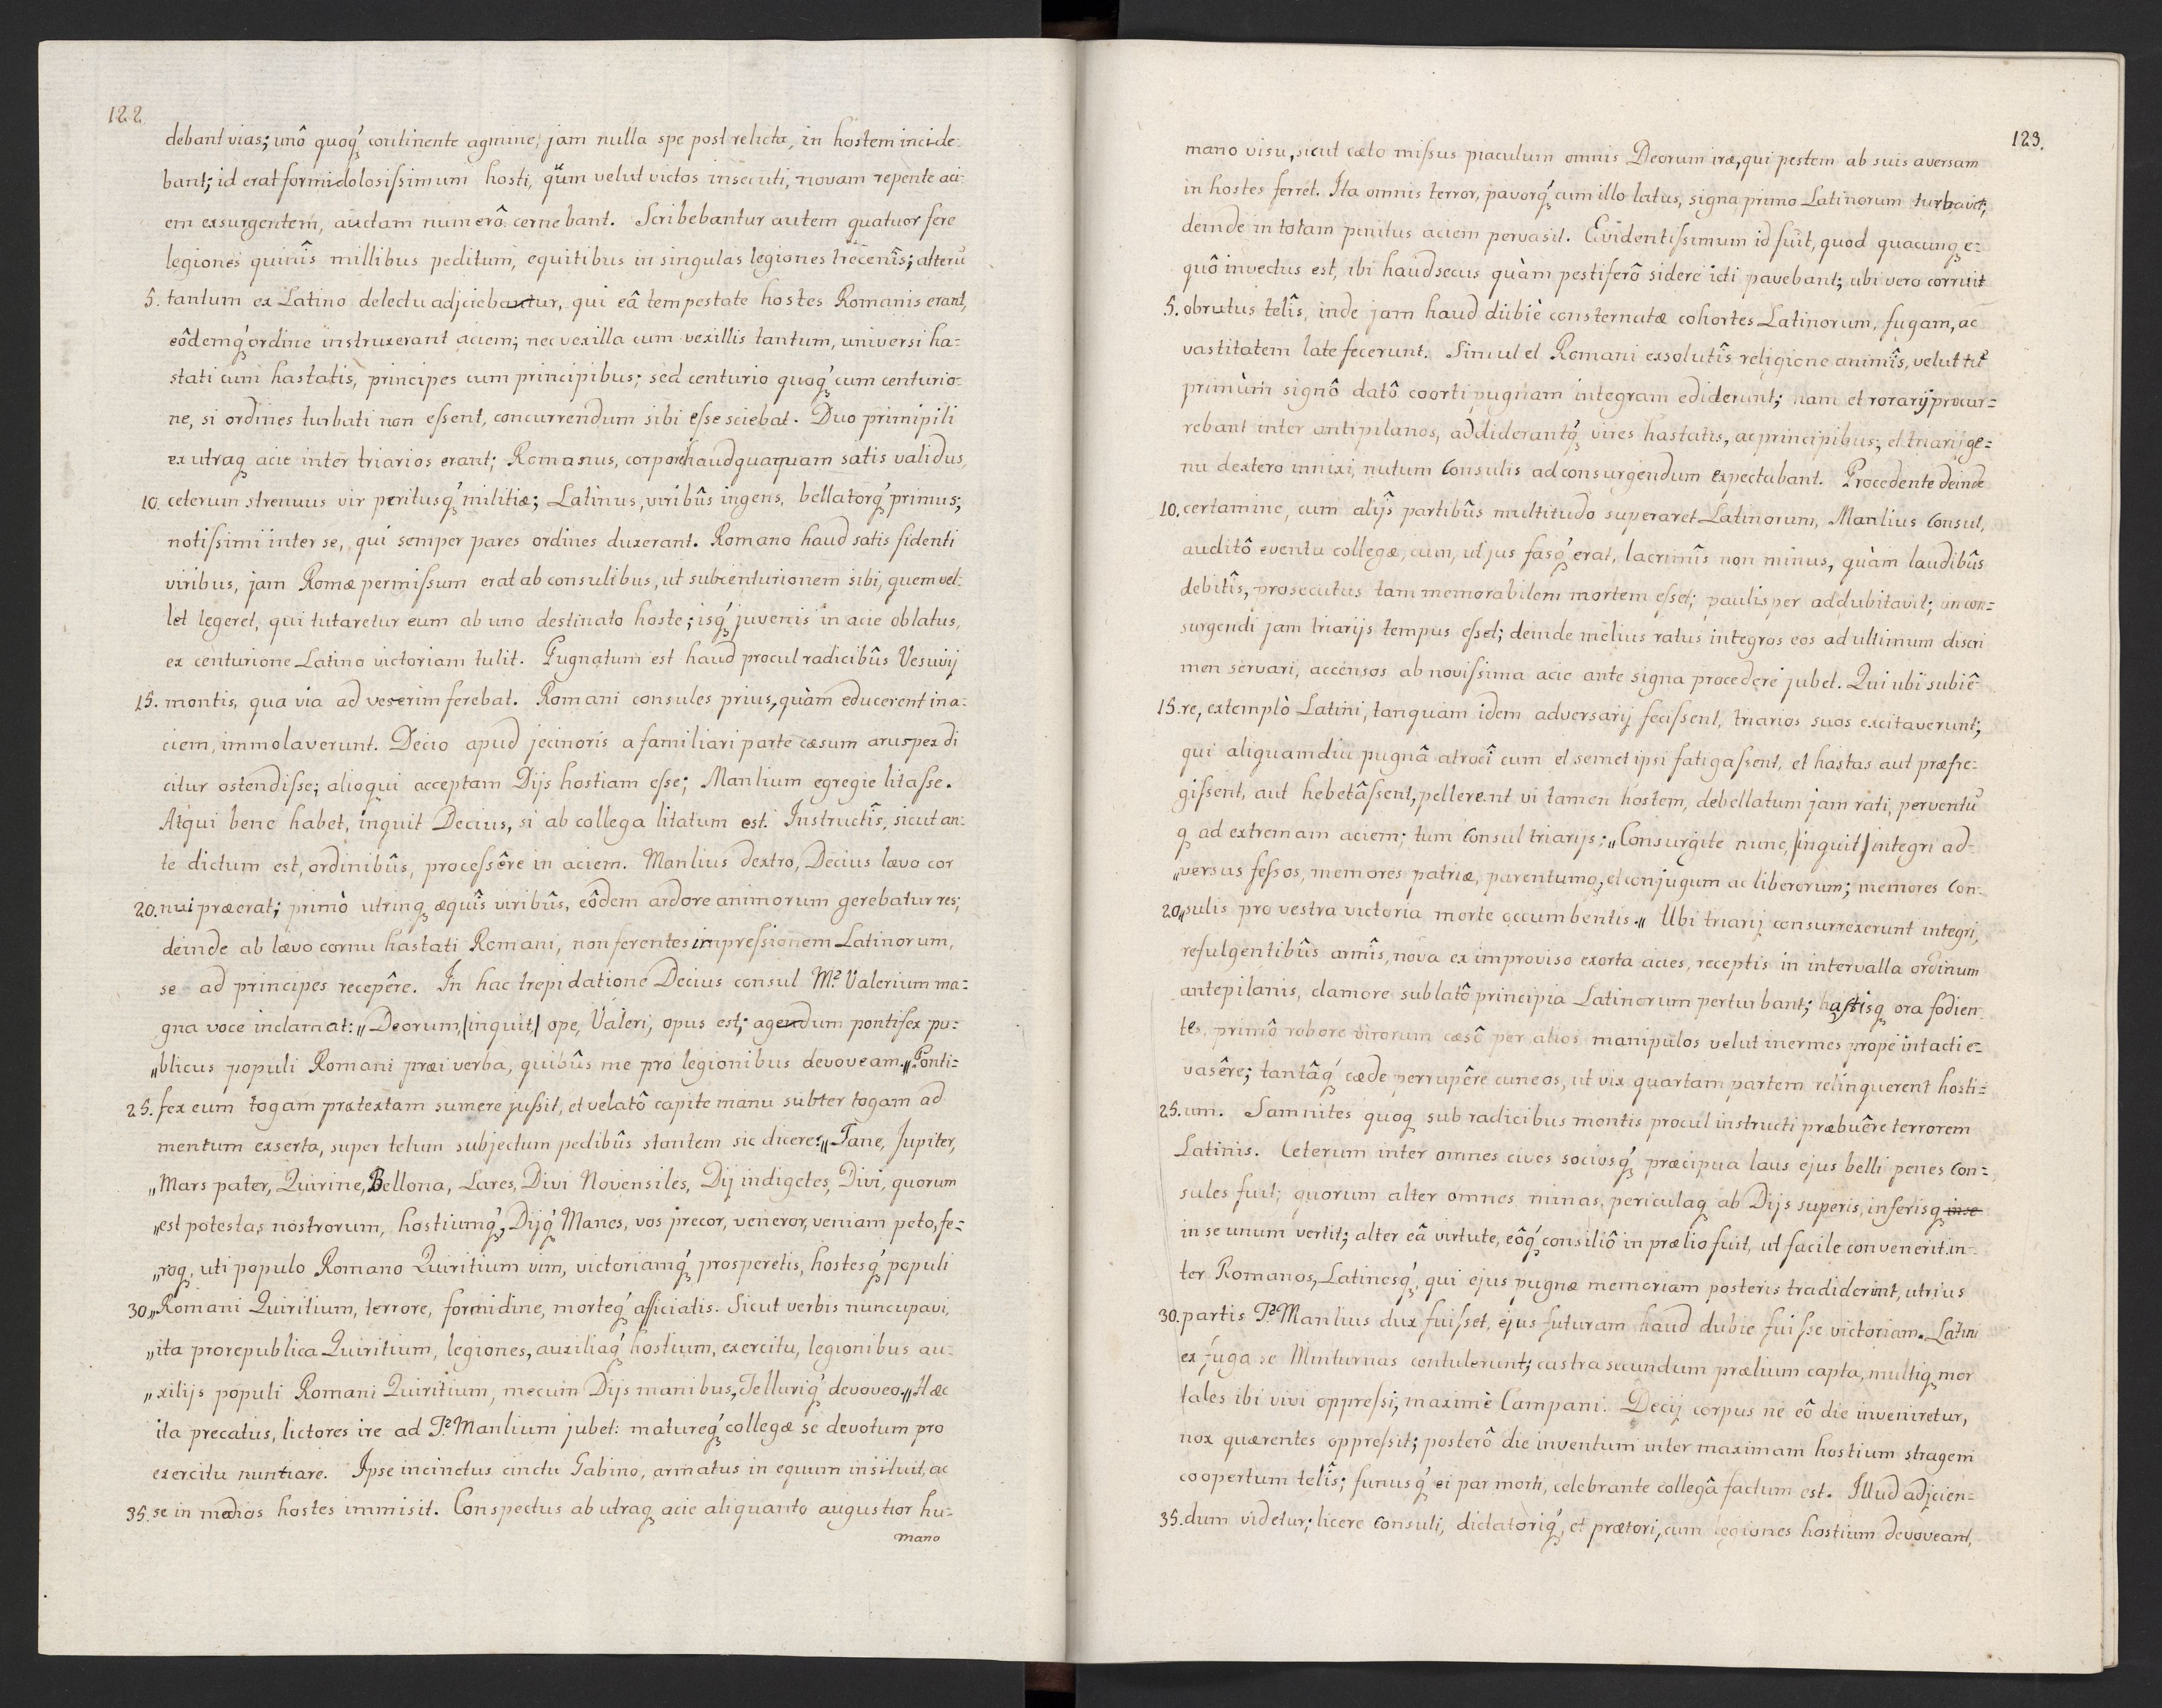 122
debant vias; unô quoq́ continente agmine, jam nulla spe post relicta, in hostem incide-
bant; id erat formidolosissimum hosti, qüm velut victos insecuti, novam repente aci-
em exsurgentem, auctam numerô cernebant. Scribebantur autem quatuor fere
legiones quinîs millibus peditum, equitibus in singulas legiones trecenîs; alterũ
5. tantum ex Latino delectu adjciebantur, qui eâ tempestate hostes Romanis erant,
eôdemq́ ordine instruxerant aciem; nec vexilla cum vexillis tantum, universi ha=
stati cum hastatis, principes cum principibus; sed centurio quoq́ cum centurio-
ne, si ordines turbati non essent, concurrendum sibi esse sciebat. Duo primipili
ex utraq acie inter triarios erant; Romanus, corpore haudquaquam satis validus,
10. ceterum strenuus vir peritusq́ militiæ; Latinus, viribûs ingens, bellatorq́ primus;
notissimi inter se, qui semper pares ordines duxerant. Romano haud satis fidenti
viribus, jam Romæ permissum erat ab consulibus, ut subcenturionem sibi, quem vel-
let legeret, qui tutaretur eum ab uno destinato hoste; isq́ juvenis in acie oblatus,
ex centurione Latino victoriam tulit. Pugnatum est haud procul radicibûs Vesuvij
15. montis, qua via ad veserim ferebat. Romani consules prius, quàm educerent in a-
ciem, immolaverunt. Decio apud jecinoris a familiari parte cæsum aruspex di
citur ostendisse; alioqui acceptam Dijs hostiam esse; Manlium egregie litasse.
Atqui bene habet, inquit Decius, si ab collega litatum est. Instructîs, sicut an-
te dictum est, ordinibûs, processêre in aciem. Manlius dextro, Decius lævo cor
20. nui præerat; primò utrinq æquîs viribûs, eôdem ardore animorum gerebatur res;
deinde ab lævo cornu hastati Romani, non ferentes impressionem Latinorum,
se ad principes recepêre. In hac trepidatione Decius consul M? Valerium ma=
gna voce inclamat: „Deorum, [inquit] ope, Valeri, opus est; agendum pontifex pu=
„blicus populi Romani præi verba, quibûs me pro legionibus devoveam.„ Ponti=
25. fex eum togam prætextam sumere jussit, et velatô capite manu subter togam ad
mentum exserta, super telum subjectum pedibûs stantem sic dicere: „Jane, Jupiter,
„Mars pater, Quirine, Bellona, Lares, Divi Novensiles, Dij indigetes, Divi, quorum
„est potestas nostrorum, hostiumq́, Dijq́ Manes, vos precor, veneror, veniam peto, fe=
„roq, uti populo Romano Quiritium vim, victoriamq́ prosperetis, hostesq́ populi
30„Romani Quiritium, terrore, formidine, morteq́ afficiatis. Sicut verbis nuncupavi,
„ita pro republica Quiritium, legiones, auxiliaq́ hostium, exercitu, legionibus au-
„xilijs populi Romani Quiritium, mecum Dijs manibus, Telluriq́ devoveo.„ Hæc
ita precatus, lictores ire ad T? Manlium jubet: matureq́ collegæ se devotum pro
exercitu nuntiare. Ipse incinctus cinctu Gabino, armatus in equum insiluit, ac
35. se in medios hostes immisit. Conspectus ab utraq acie aliquanto augustior hu-
mano
123.
mano visu, sicut cælo missus piaculum omnis Deorum iræ, qui pestem ab suis aversam
in hostes ferret. Ita omnis terror, pavorq́ cum illo latus, signa primo Latinorum turbavit,
deinde in totam penitus aciem pervasit. Evidentissimum id fuit, quod quacunq e-
quô invectus est, ibi haud secus quàm pestiferô sidere icti pavebant; ubi vero corruit
5. obrutus telîs, inde jam haud dubiè consternatæ cohortes Latinorum, fugam, ac
vastitatem late fecerunt. Simul et Romani exsolutîs religione animîs, velut tũ
primùm signô datô coorti pugnam integram ediderunt; nam et rorarij procur=
rebant inter antipilanos, addiderantq́ vires hastatis, ac principibus; et triarij ge=
nu dextero innixi, nutum Consulis ad consurgendum expectabant. Procedente deinde
10. certamine, cum alijs partibûs multitudo superaret Latinorum, Manlius Consul,
auditô eventu collegæ, cum, ut jus fasq́ erat, lacrimîs non minus, quàm laudibûs
debitîs, prosecutus tam memorabilem mortem esset; paulisper addubitavit; an con=
surgendi jam triarijs tempus esset; deinde melius ratus integros eos ad ultimum discri
men servari, accensos ab novissima acie ante signa procedere jubet. Qui ubi subiê-
15. re, extemplò Latini, tanquam idem adversarij fecissent, triarios suos excitaverunt;
qui aliquamdiu pugnâ atrocî cum et semet ipsi fatigassent, et hastas aut præfre-
gissent, aut hebetâssent, pellerent vi tamen hostem, debellatum jam rati, perventũ
q ad extremam aciem; tum Consul triarijs: „Consurgite nunc, [inquit] integri ad-
„versus fessos, memores patriæ, parentumq, et conjugum ac liberorum; memores Con-
20„sulis pro vestra victoria morte occumbentis.„ Ubi triarij consurrexerunt integri,
refulgentibûs armîs, nova ex improviso exorta acies, receptis in intervalla ordinum
antepilanis, clamore sublatô principia Latinorum perturbant; hastisq ora fodien
tes, primô robore virorum cæsô per alios manipulos velut inermes prope intacti e-
vasêre; tantâq́ cæde perrupêre cuneos, ut vix quartam partem relinquerent hosti=
25. um. Samnites quoq sub radicibus montis procul instructi præbuêre terrorem
Latinis. Ceterum inter omnes cives sociosq́ præcipua laus ejus belli penes Con-
sules fuit; quorum alter omnes minas, periculaq ab Dijs superis, inferisq in se
in se unum vertit; alter eâ virtute, eôq́ consiliô in prælio fuit, ut facile convenerit in-
ter Romanos, Latinosq́, qui ejus pugnæ memoriam posteris tradiderint, utrius
30. partis T? Manlius dux fuisset, ejus futuram haud dubie fuisse victoriam. Latini
ex fuga se Minturnas contulerunt; castra secundum prælium capta, multiq mor
tales ibi vivi oppressi, maximè Campani. Decij corpus ne eô die inveniretur,
nox quærentes oppressit; posterô die inventum inter maximam hostium stragem
coopertum telîs; funusq́ ei par morti, celebrante collegâ factum est. Illud adjcien=
35. dum videtur; licere Consuli, dictatoriq́, et prætori, cum legiones hostium devoveant,